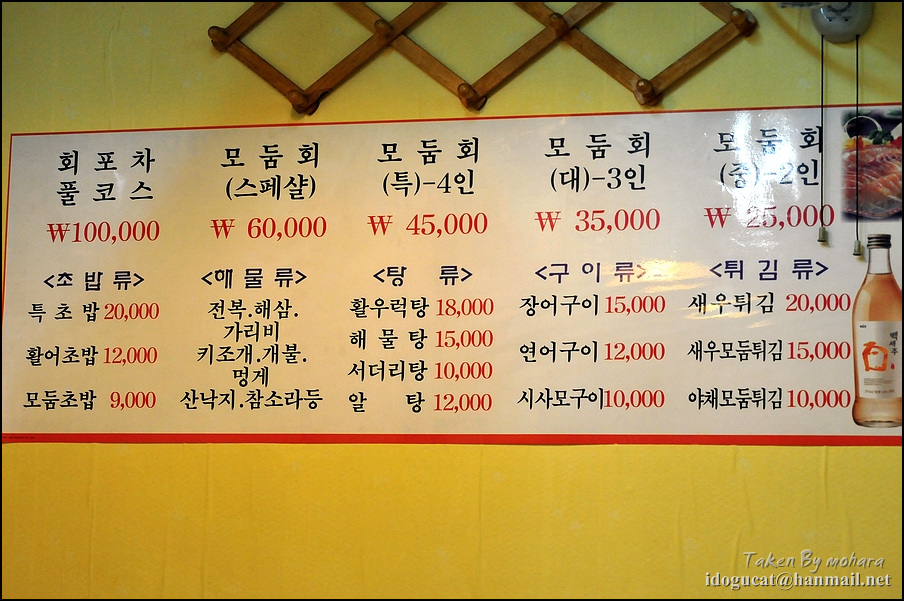 회 포 차
풀 코 스
₩100,000
모 둠 회
(스페샬)
₩ 60,000
모 둠 회
(특)-4인
₩ 45,000
모 둠 회
(대)-3인
₩ 35,000
모 둠 회
(중)-2인
₩ 25,000
<초 밥 류>
특 초 밥 20,000
활어초밥 12,000
모둠초밥 9,000
<해 물 류>
전복.해삼.
가리비
키조개.개불.
멍게
산낙지.참소라등
<탕 류>
활우럭탕 18,000
해 물 탕 15,000
서더리탕 10,000
알 탕 12,000
<구 이 류>
장어구이 15,000
연어구이 12,000
시사모구이10,000
<튀 김 류>
새우튀김 20,000
새우모둠튀김 15,000
야채모둠튀김 10,000
백세주
Taken By mohara
idogucat@hanmail.net